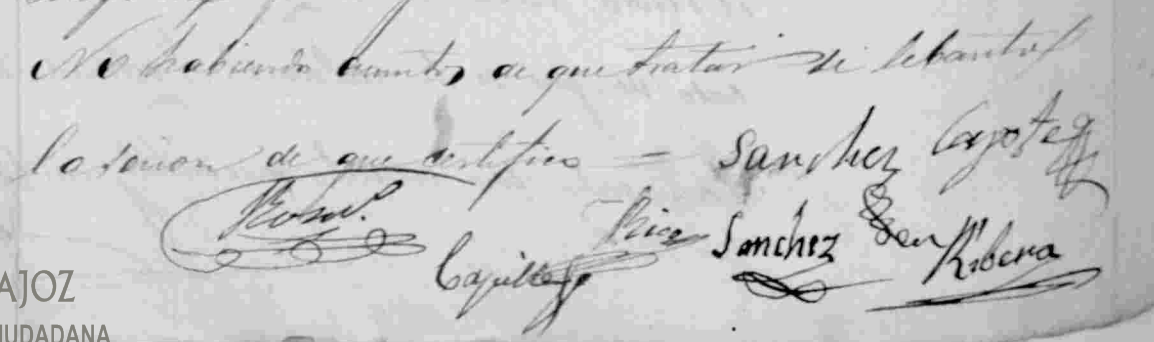 No habiendo asuntos de que tratar se lebantó
la sesion de que certifico = Sanchez Capote
Rico Sanchez Ribera
Capilla
AJOZ
IUDADANA